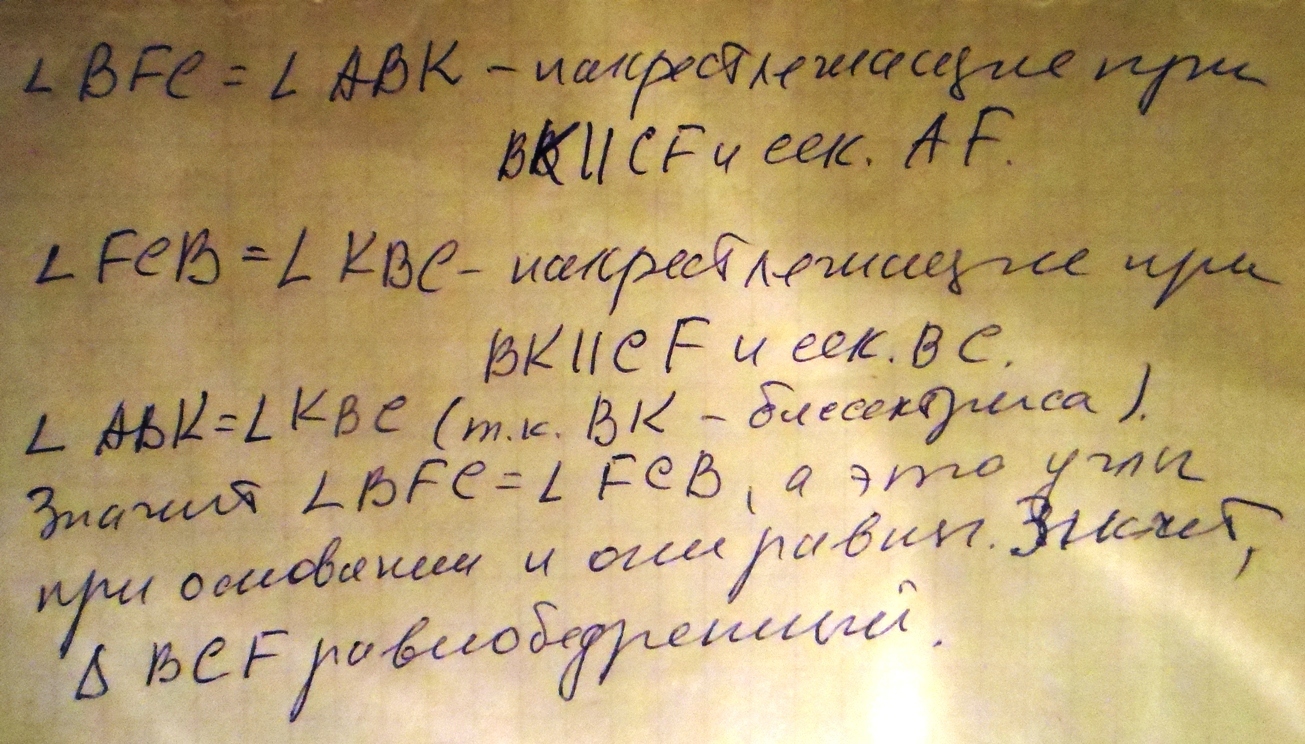 ∠ BFC = ∠ ABK – накрест лежащие при
BK || CF и сек. AF.
∠ FCB = ∠ KBC – накрест лежащие при
BK || CF и сек. BC.
∠ ABK = ∠ KBC (т.к. BK – биссектриса).
Значит ∠ BFC = ∠ FCB, а это углы
при основании и они равны. Значит,
Δ BCF равнобедренный.